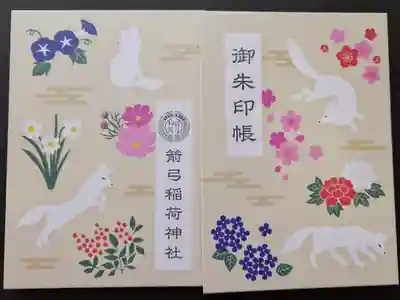 御朱印帳
箭弓稲荷神社